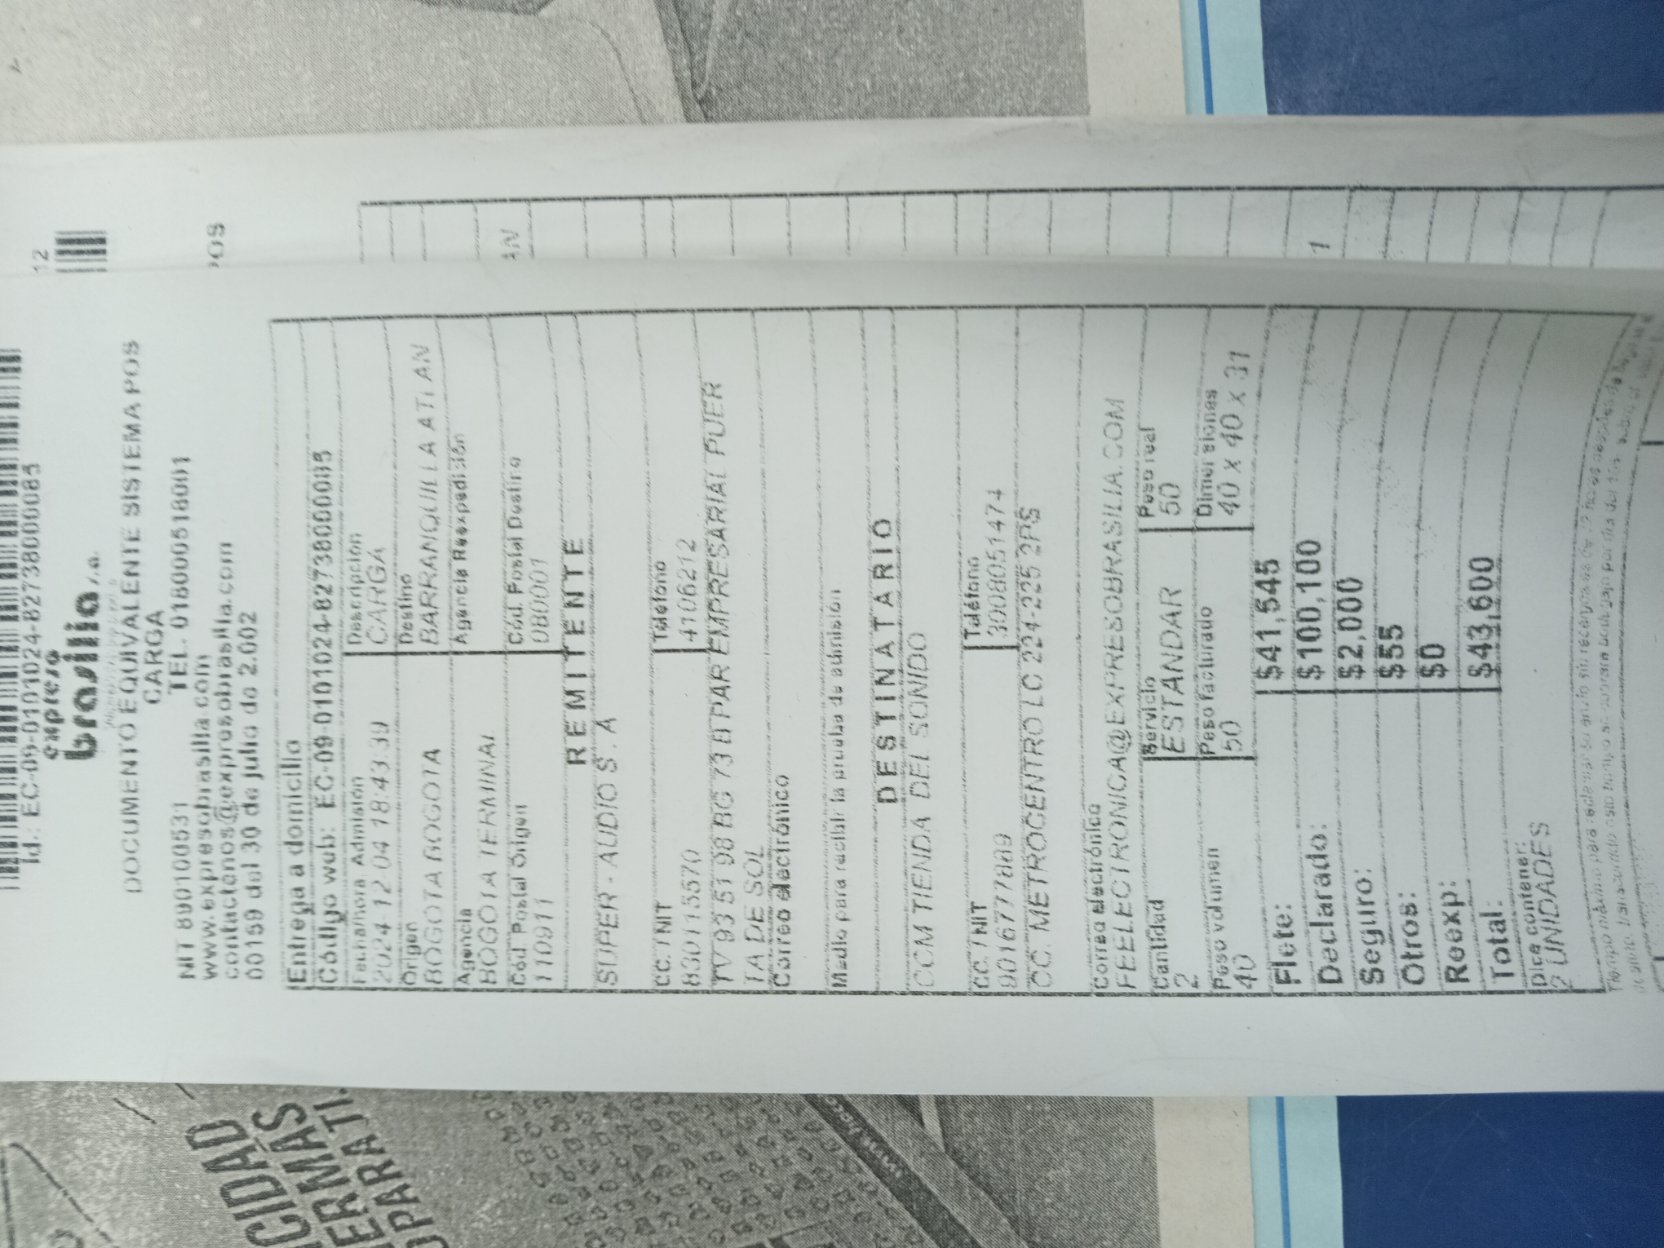 Id.: EC-09-0101024-82738000085
expreso
brasilia s.a.
DOCUMENTO EQUIVALENTE SISTEMA POS
CARGA
NIT 890100531 TEL. 018000518001
www.expresobrasilia.com
contactenos@expresobrasilia.com
00159 del 30 de julio de 2.002
Entrega a domicilio
Código web: EC-09-0101024-8273800000085
Fecha/hora Admisión Descripción
2024-12-04 18:43:39 CARGA
Origen Destino
BOGOTA BOGOTA BARRANQUILLA ATLAN
Agencia Agencia Reexpedición
BOGOTA TERMINAL
Cód. Postal Origen Cód. Postal Destino
110911 080001
REMITENTE
SUPER - AUDIO S . A
CC. / NIT Teléfono
830115570 4106212
TV 93 51 98 BG 73 B PAR EMPRESARIAL PUER
TA DE SOL
Correo electrónico
Medio para recibir la prueba de admisión
DESTINATARIO
CCM TIENDA DEL SONIDO
CC. / NIT Teléfono
9016777889 3008051474
CC. METROCENTRO LC 224-225 2PS
Correo electrónico
FEELECTRONICA@EXPRESOBRASILIA.COM
Cantidad Servicio Peso real
2 ESTANDAR 50
Peso volumen Peso facturado Dimensiones
40 50 40 x 40 x 31
Flete: $41,545
Declarado: $100,100
Seguro: $2,000
Otros: $55
Reexp: $0
Total: $43,600
Dice contener:
2 UNIDADES
12
POS
AN
1
CIDAD
ERMAS
OPARATI